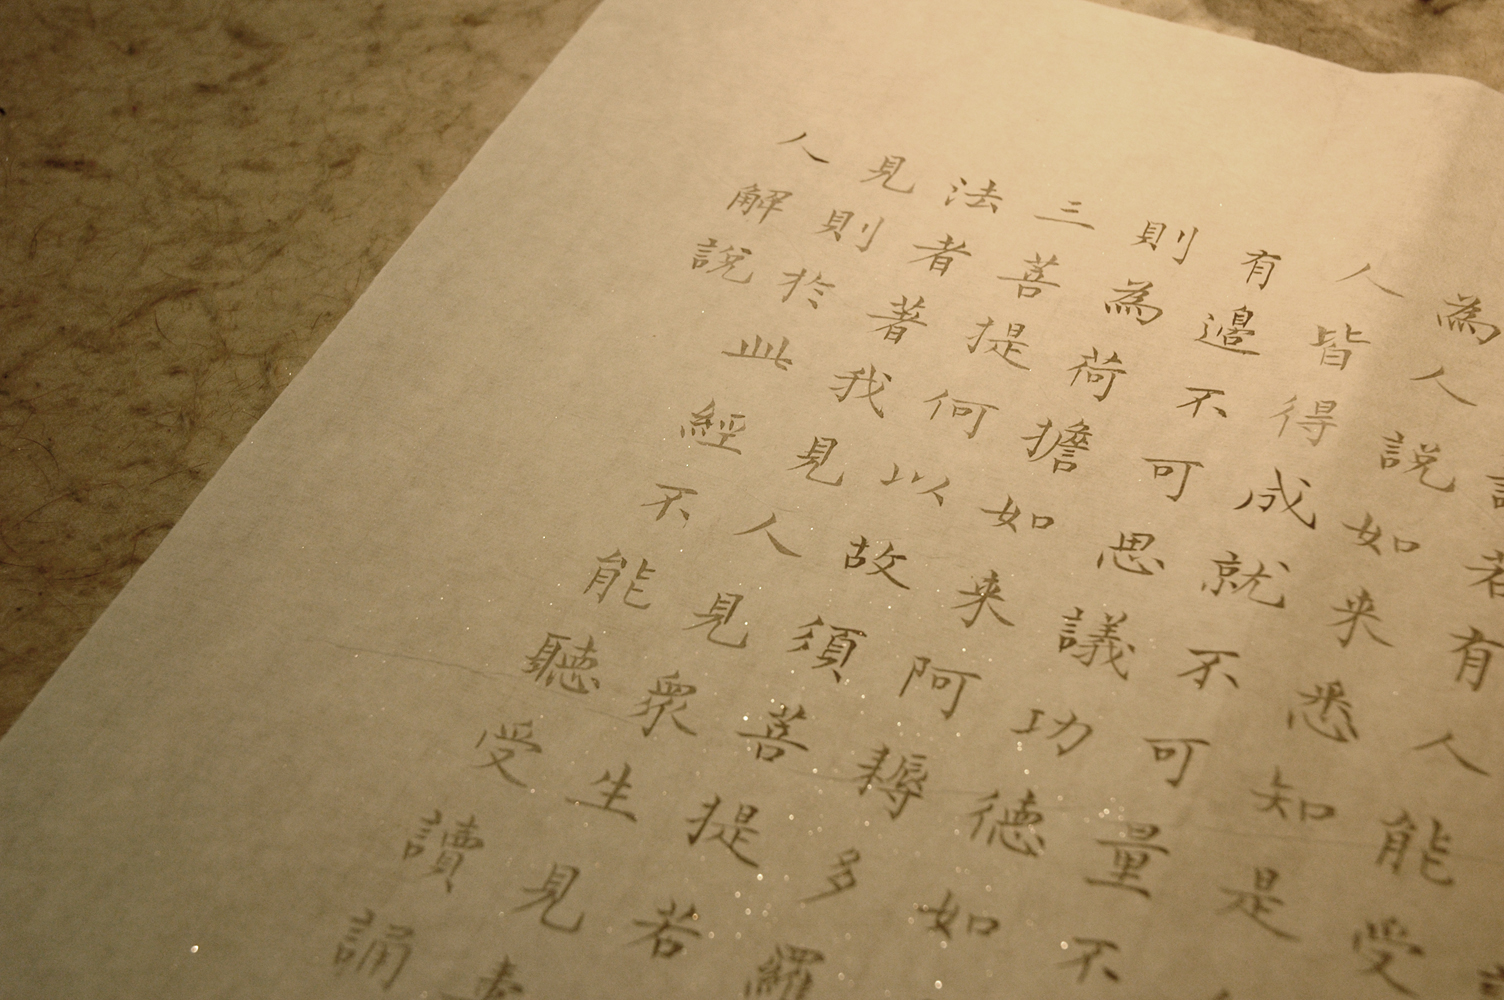 若有人能受
為人說如来悉知是
人皆得成就不可量不
有邊不可思議功德如
則為荷擔如来阿耨多羅
三菩提何以故須菩提若
法者著我見人見衆生見壽
見則於此經不能聽受讀誦
人解說